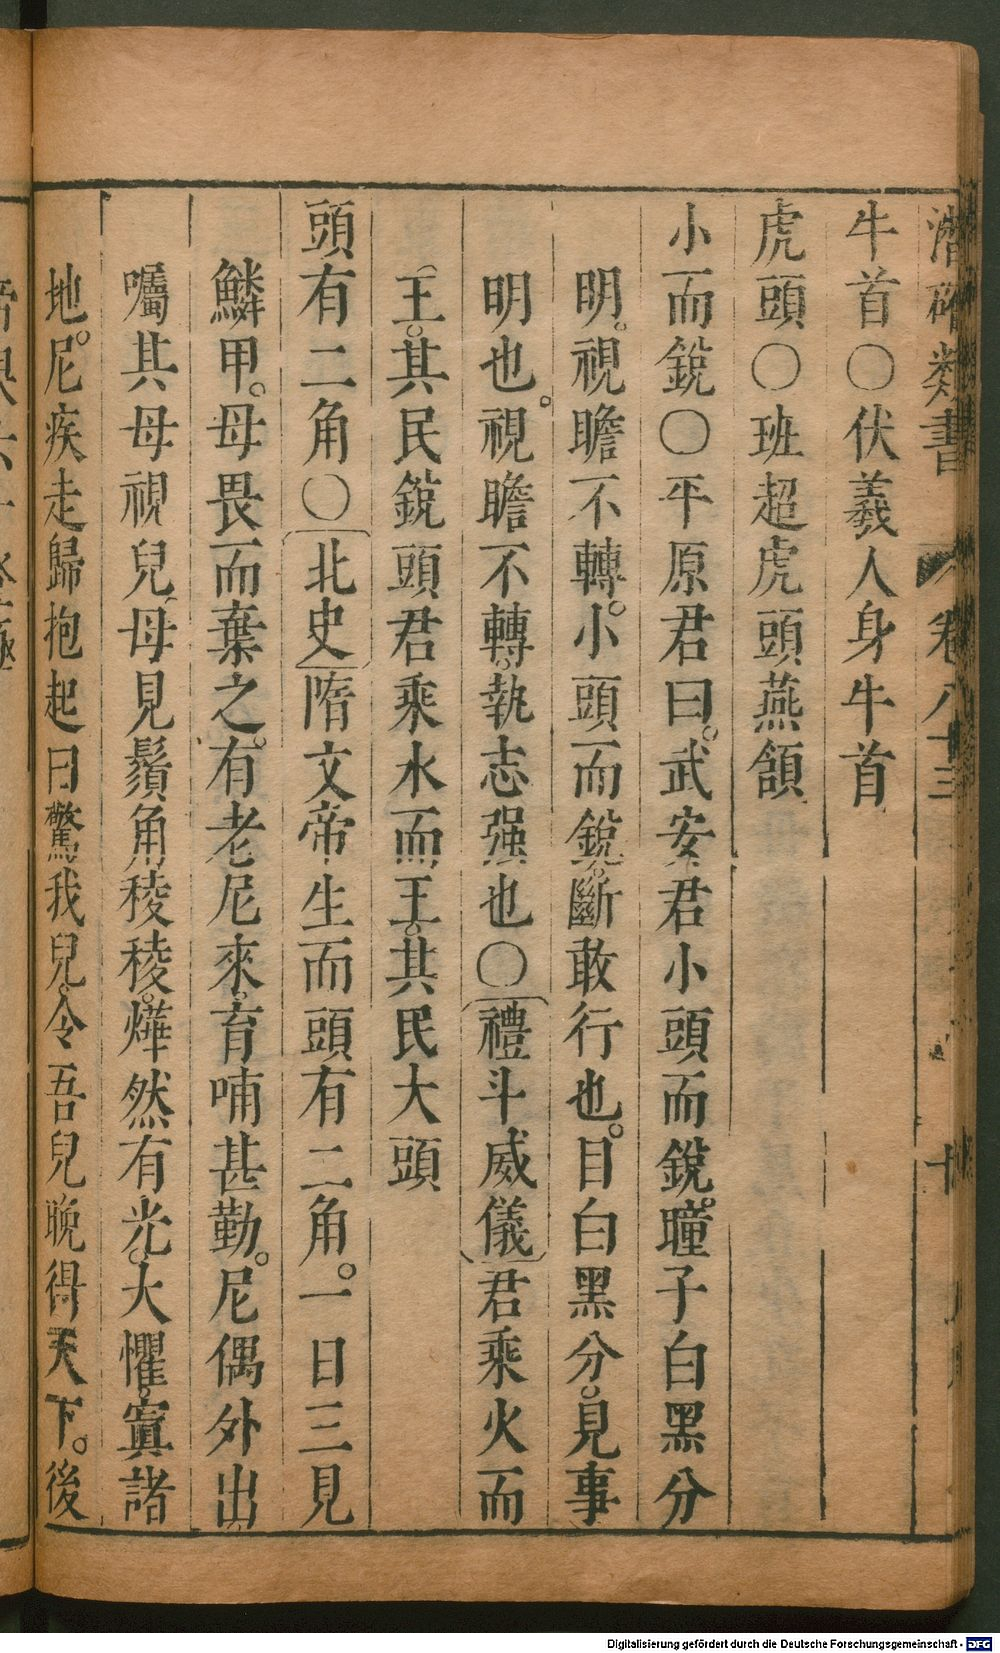 潛確類書 卷八十三
牛首○伏羲人身牛首
虎頭○班超虎頭燕頷
小而銳○平原君曰。武安君小頭而銳。瞳子白黑分
明。視瞻不轉。小頭而銳。斷敢行也。目白黑分。見事
明也。視瞻不轉。執志强也○禮斗威儀君乘火而
王。其民銳頭君乘水而王。其民大頭
頭有二角○北史隋文帝生而頭有二角。一日三見
鱗甲。母畏而棄之。有老尼來。育哺甚勤。尼偶外出。
囑其母視兒。母見鬚角稜稜。燁然有光。大懼。寘諸
地。尼疾走歸抱起曰驚我兒。令吾兒晚得天下。後
Digitalisierung gefördert durch die Deutsche Forschungsgemeinschaft - DFG